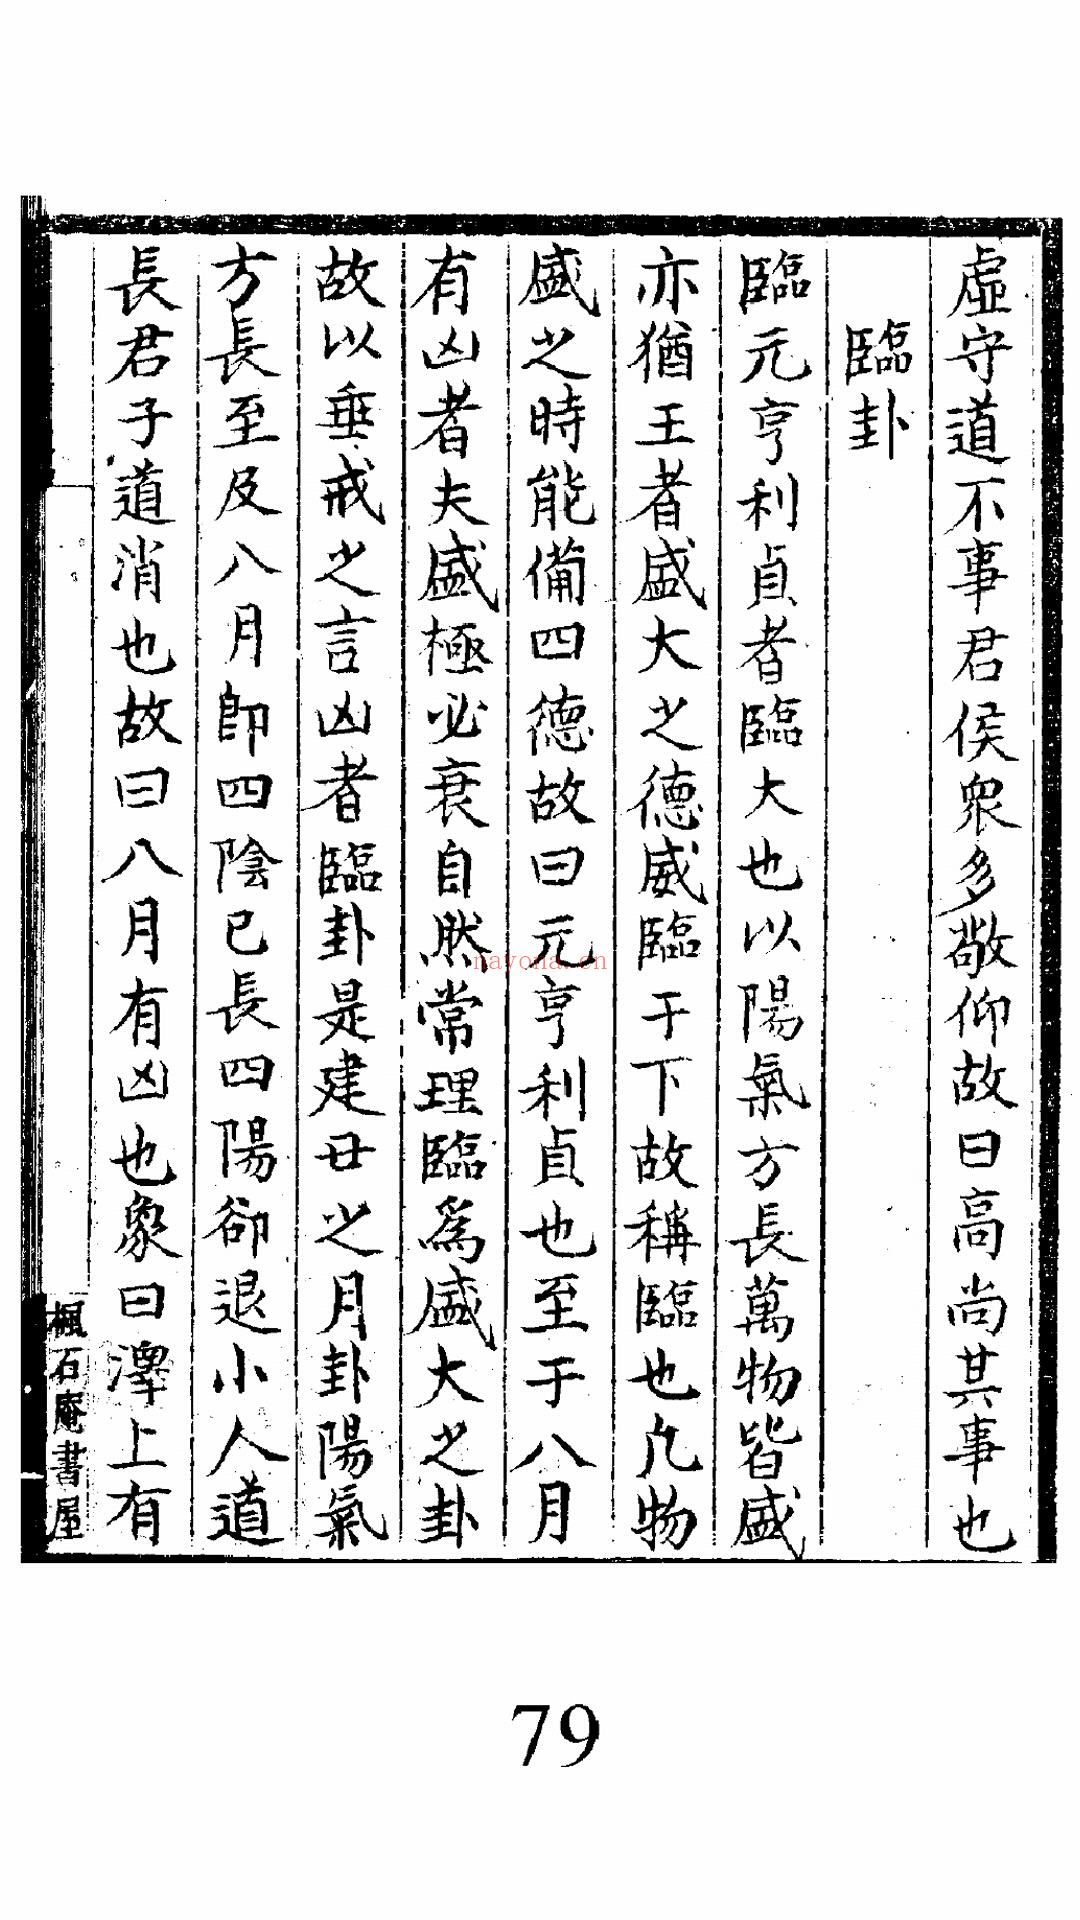 虛守道不事君侯衆多敬仰故曰高尚其事也
臨卦
臨元亨利貞者臨大也以陽氣方長萬物皆盛
亦猶王者盛大之德威臨于下故稱臨也凢物
盛之時能備四德故曰元亨利貞也至于八月
有凶者夫盛極必衰自然常理臨爲盛大之卦
故以垂戒之言凶者臨卦是建丑之月卦陽氣
方長至及八月卽四陰已長四陽卻退小人道
長君子道消也故曰八月有凶也象曰澤上有
楓石庵書屋
nayona.cn
79